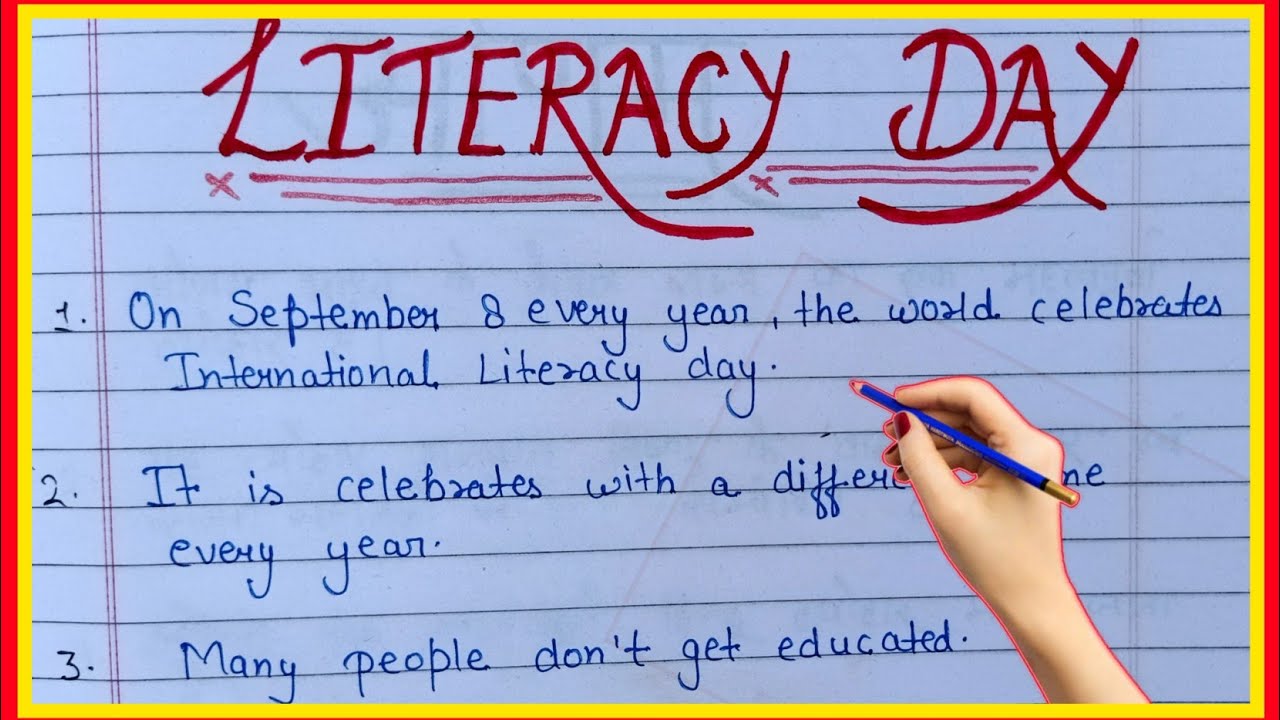 LITERACY DAY
1. On September 8 every year, the world celebrates
International Literacy day.
2. It is celebrates with a
every year.
3. Many people don't get educated.